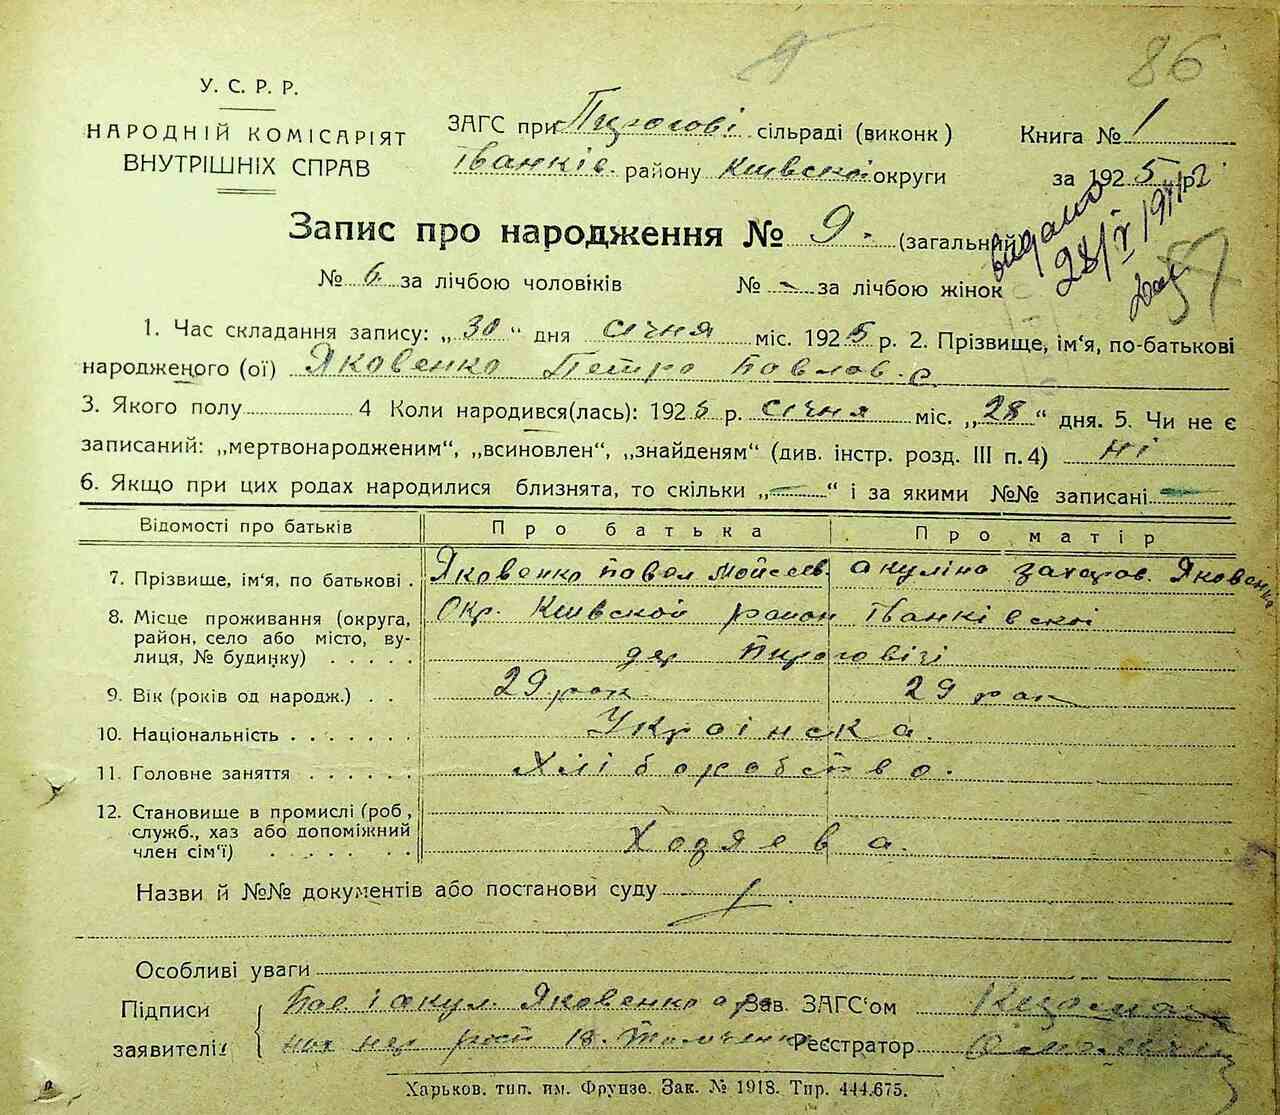 9 86
У. С. Р. Р.
НАРОДНІЙ КОМІСАРІЯТ
ВНУТРІШНІХ СПРАВ
ЗАГС при Пирогові сільраді (виконк)
Іванків. району Київской округи
Книга № 1
за 1925 р.
Запис про народження № 9. (загальний
видано
28/V 1941 р
57
№ 6 за лічбою чоловіків № - за лічбою жінок
1. Час складання запису: „30“ дня січня міс. 1925 р. 2. Прізвище, ім‘я, по-батькові
народженого (ої) Яковенко Петро Павлов.
3. Якого полу 4 Коли народився(лась): 1925 р. січня міс. „28“ дня. 5. Чи не є
записаний: „мертвонародженим“, „всиновлен“, „знайденям“ (див. інстр. розд. III п. 4) ні
6. Якщо при цих родах народилися близнята, то скільки „—“ і за якими №№ записані —
Відомості про батьків Про батька Про матір
7. Прізвище, ім‘я, по батькові . Яковенко Павел Мойсеєв. Акуліна Захаров. Яковенко
8. Місце проживання (округа,
район, село або місто, ву-
лиця, № будинку) . . . . .
Окр. Київской район Іванківскоі
дер Пироговічі
9. Вік (років од народж.) . . 29 рок 29 рок
10. Національність . . . . . . . Украінска.
11. Головне заняття . . . . . . Хліборобство.
12. Становище в промислі (роб,
служб., хаз або допоміжний
член сім‘ї) . . . . . . .
Хозяева.
Назви й №№ документів або постанови суду
Особливі уваги
Підписи
заявителів
Пав. і Акул. Яковенко Зав. ЗАГС‘ом
Реєстратор
Харьков. тип. им. Фрунзе. Зак. № 1918. Тир. 444.675.